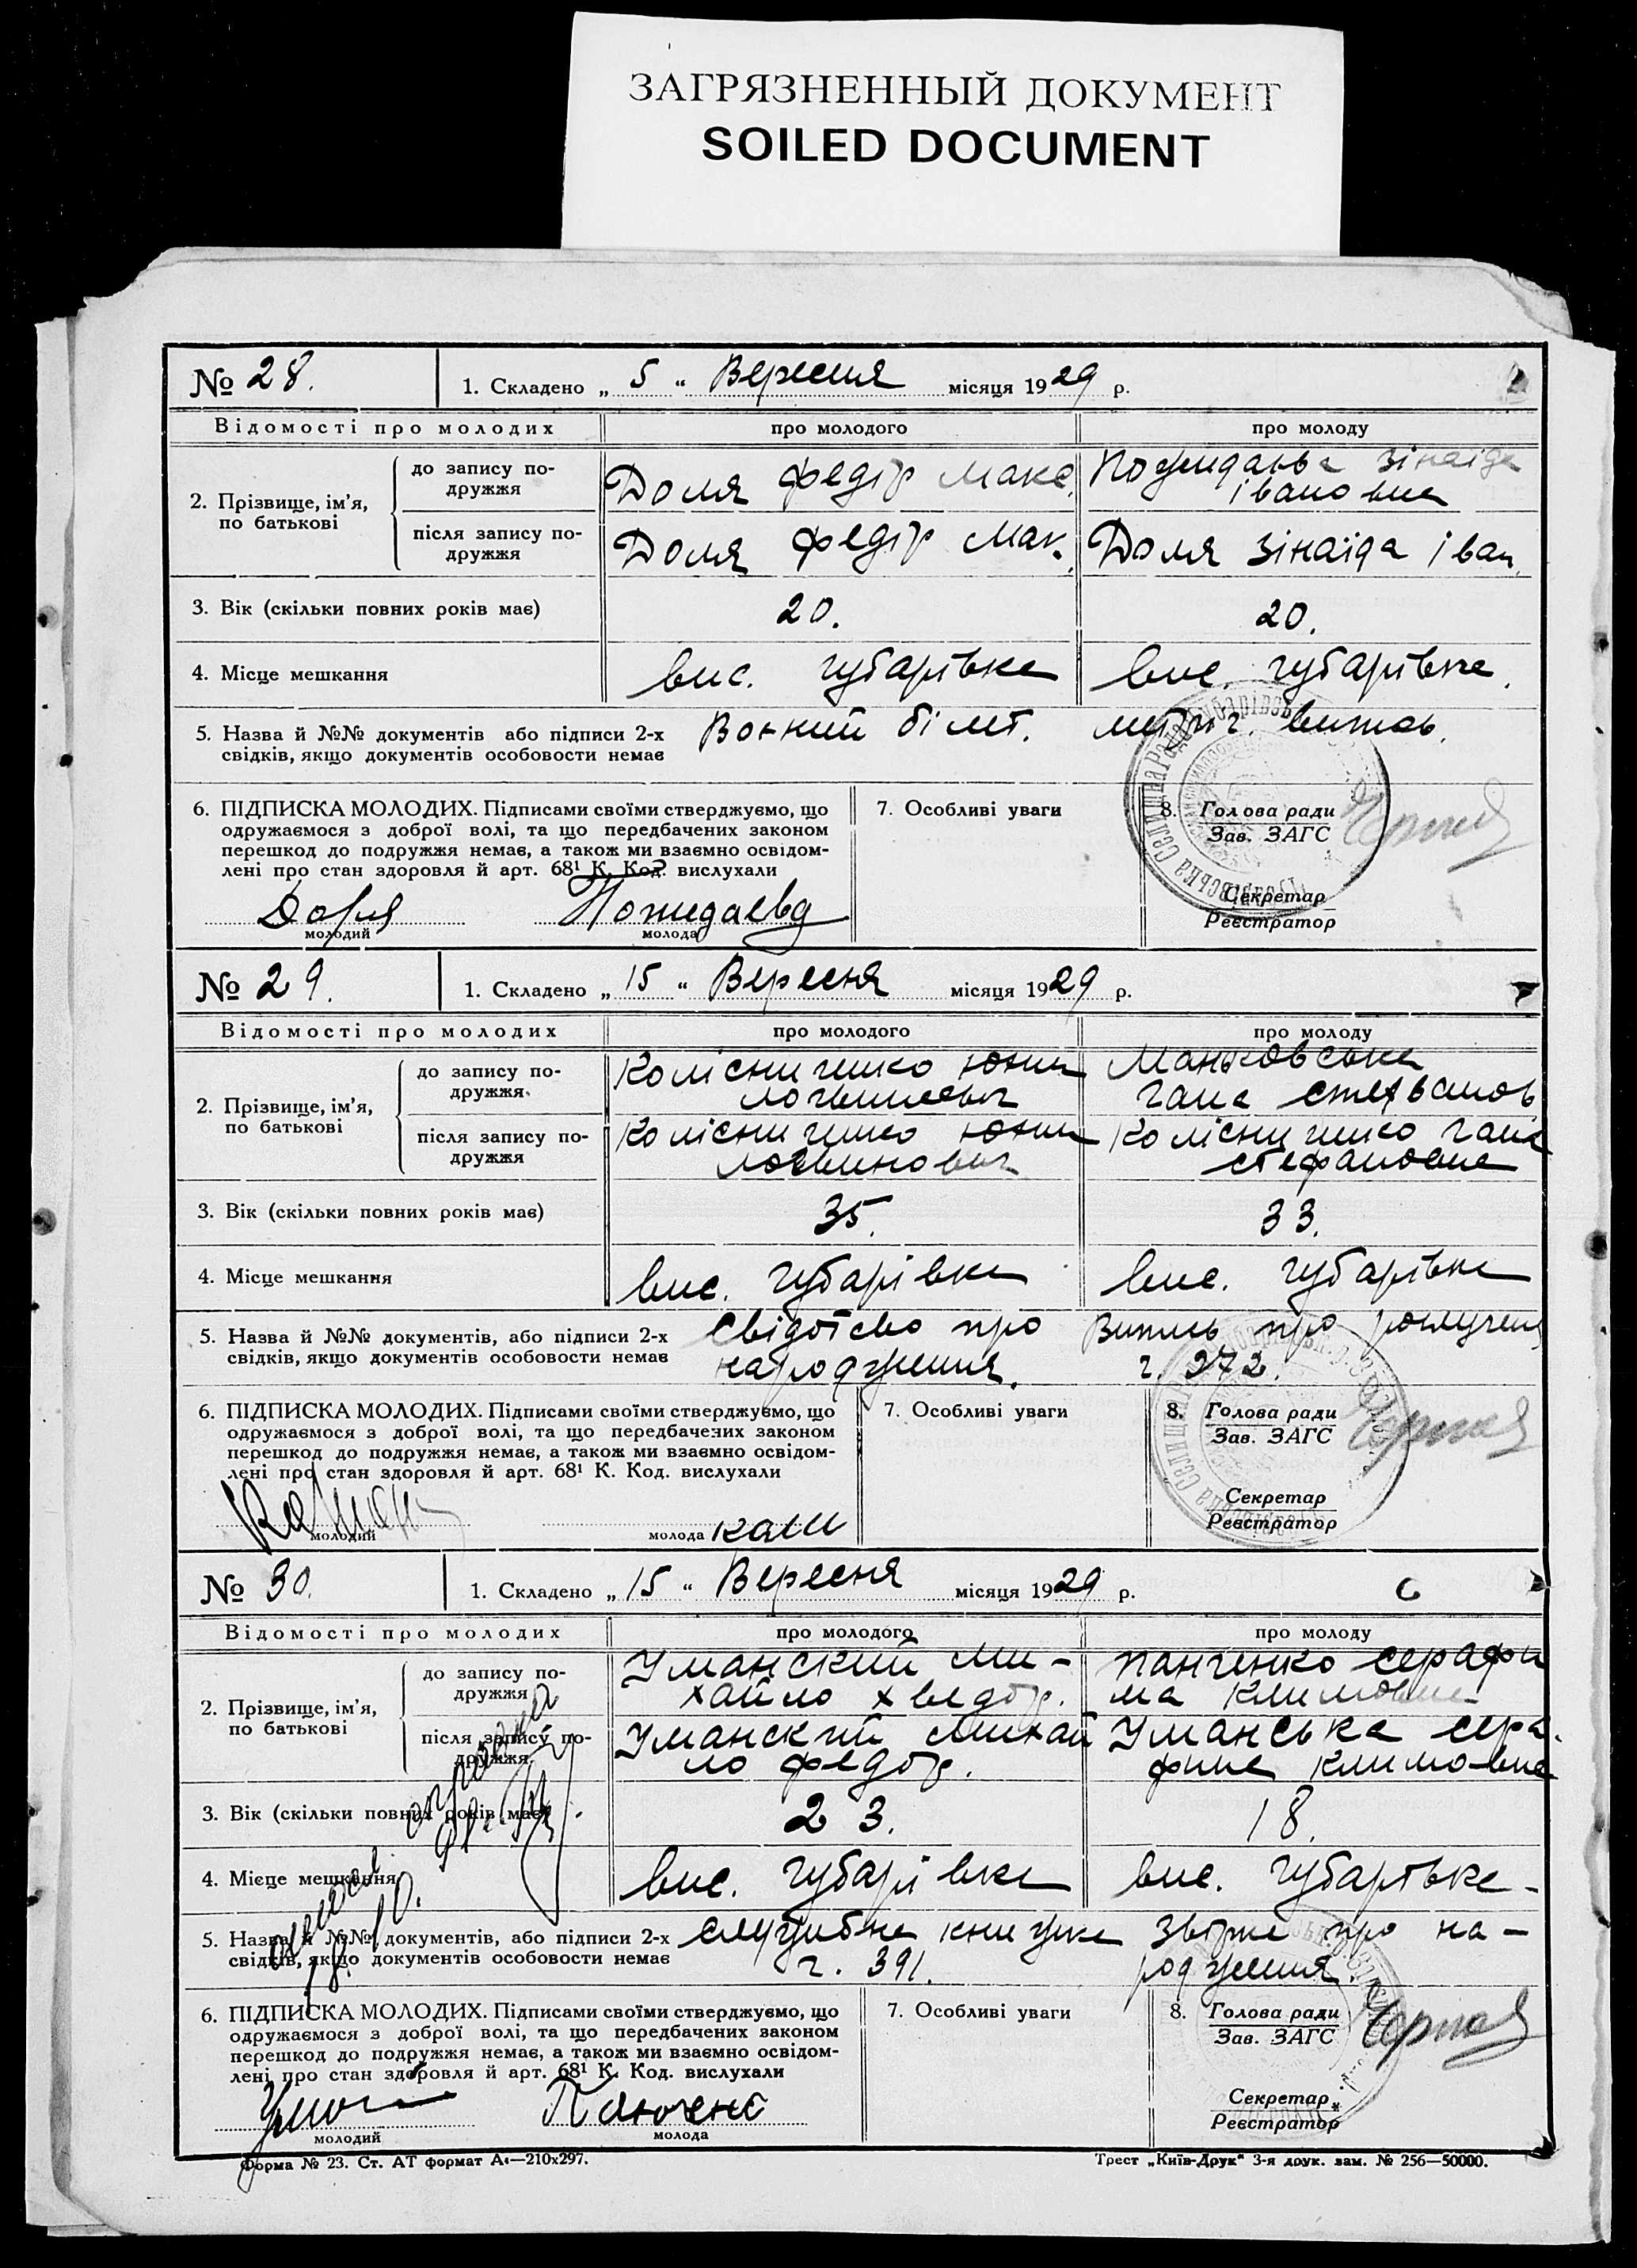 ЗАГРЯЗНЕННЫЙ ДОКУМЕНТ
SOILED DOCUMENT
№ 28. 1. Складено „ 5 “ Вересня місяця 1929 р.
Відомості про молодих про молодого про молоду
2. Прізвище, ім'я, по батькові
до запису подружжя Доля Федір Макс.
Зінаїда
Івановна
після запису подружжя Доля Федір Мак. Доля Зінаїда Іван.
3. Вік (скільки повних років має) 20. 20.
4. Місце мешкання вис. Губарівка вис. Губарівка.
5. Назва й №№ документів або підписи 2-х
свідків, якщо документів особовости немає
білет. метрич. випись.
6. ПІДПИСКА МОЛОДИХ. Підписами своїми стверджуємо, що
одружаємося з доброї волі, та що передбачених законом
перешкод до подружжя немає, а також ми взаємно освідом-
лені про стан здоровля й арт. 68¹ К. Код. вислухали
молодий Пожидаєва молода
7. Особливі уваги
8. Голова ради
Зав. ЗАГС
Секретар
Реєстратор
№ 29. 1. Складено „ 15 “ Вересня місяця 1929 р.
Відомості про молодих про молодого про молоду
2. Прізвище, ім'я, по батькові
до запису подружжя Колісниченко
Маньковська
Гана
після запису подружжя Колісниченко
Логвинович
Колісниченко Гана
Стефановна
3. Вік (скільки повних років має) 35. 33.
4. Місце мешкання вис. Губарівка вис. Губарівка
5. Назва й №№ документів, або підписи 2-х
свідків, якщо документів особовости немає
Свідотство про
народження.
Випись про
ч. 272.
6. ПІДПИСКА МОЛОДИХ. Підписами своїми стверджуємо, що
одружаємося з доброї волі, та що передбачених законом
перешкод до подружжя немає, а також ми взаємно освідом-
лені про стан здоровля й арт. 68¹ К. Код. вислухали
молодий молода
7. Особливі уваги
8. Голова ради
Зав. ЗАГС
Секретар
Реєстратор
№ 30. 1. Складено „ 15 “ Вересня місяця 1929 р.
Відомості про молодих про молодого про молоду
2. Прізвище, ім'я, по батькові
до запису подружжя Уманский Ми-
хайло Хведор.
Панченко Серафи
ма Климовна
після запису подружжя Уманский Михай
ло Федор.
Уманська Сера.
фина Климовна
3. Вік (скільки повних років має) 23. 18.
4. Місце мешкання вис. Губарівка вис. Губарівка-
5. Назва й №№ документів, або підписи 2-х
свідків, якщо документів особовости немає
службна книжка
ч. 391.
про на-
родження
6. ПІДПИСКА МОЛОДИХ. Підписами своїми стверджуємо, що
одружаємося з доброї волі, та що передбачених законом
перешкод до подружжя немає, а також ми взаємно освідом-
лені про стан здоровля й арт. 68¹ К. Код. вислухали
молодий молода
7. Особливі уваги
8. Голова ради
Зав. ЗАГС
Секретар
Реєстратор
Форма № 23. Ст. АТ формат А4—210x297.
Трест „Київ-Друк“ 3-я друк. зам. № 256—50000.